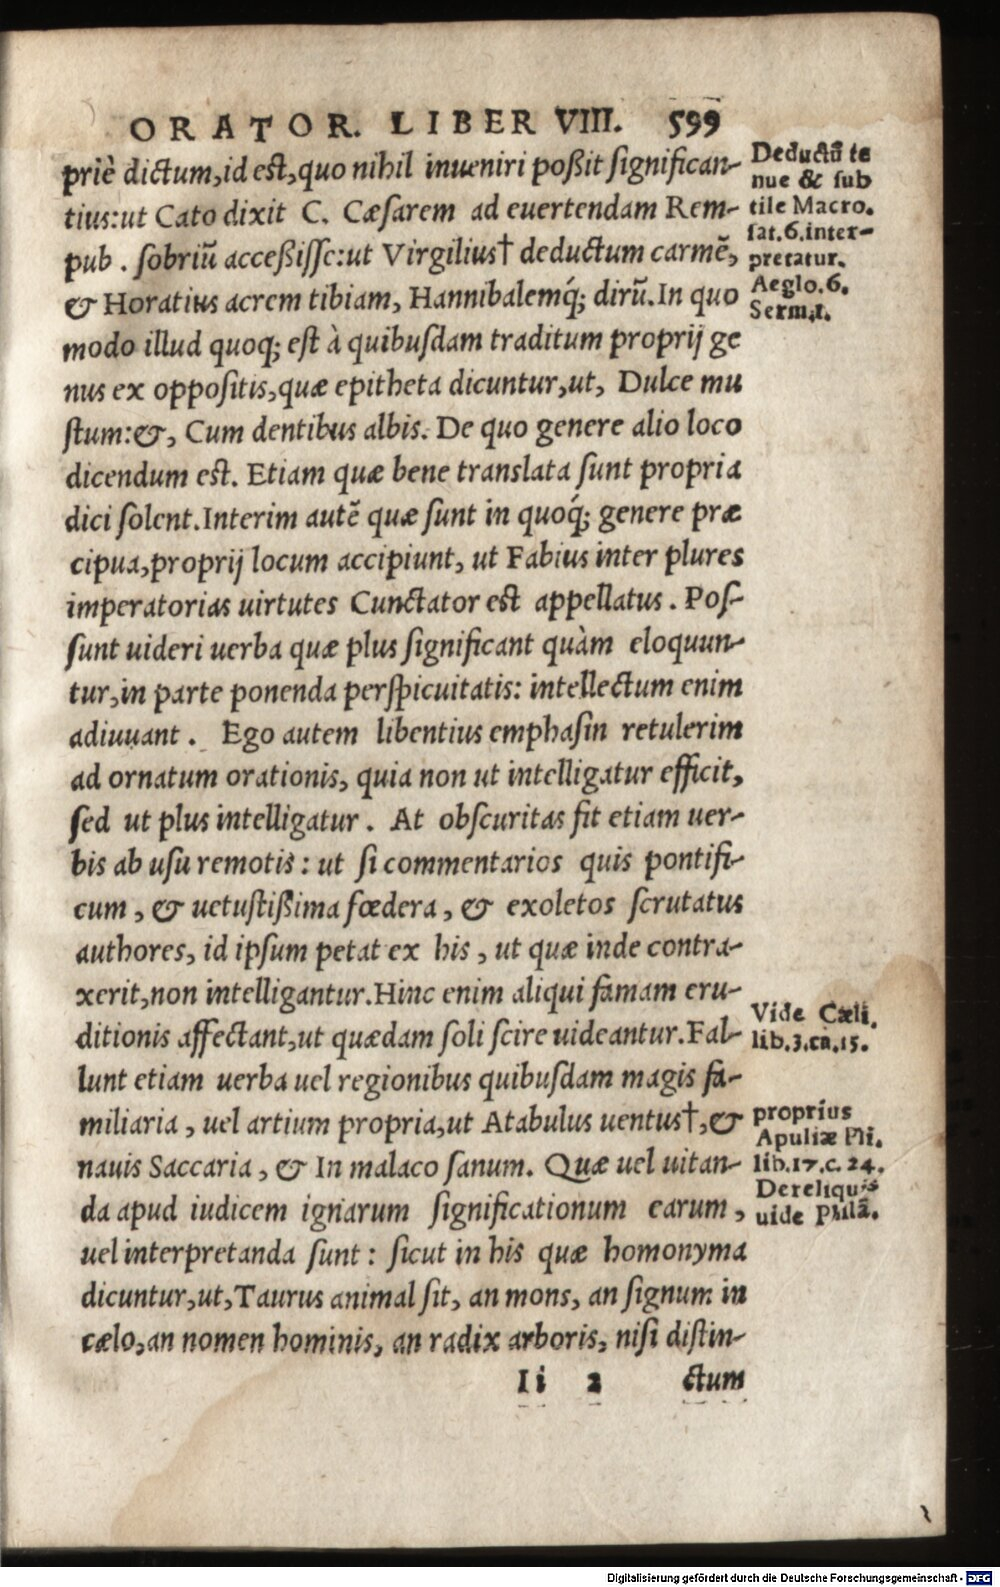 ORATOR. LIBER VIII. 599
priè dictum, id est, quo nihil inueniri poßit significan-
tius: ut Cato dixit C. Cæsarem ad euertendam Rem-
pub. sobriũ acceßisse: ut Virgilius† deductum carmẽ,
& Horatius acrem tibiam, Hannibalemq́; dirũ. In quo
modo illud quoq; est à quibusdam traditum proprij ge
nus ex oppositis, quæ epitheta dicuntur, ut, Dulce mu
stum: &, Cum dentibus albis. De quo genere alio loco
dicendum est. Etiam quæ bene translata sunt propria
dici solent. Interim autẽ quæ sunt in quoq́; genere præ
cipua, proprij locum accipiunt, ut Fabius inter plures
imperatorias uirtutes Cunctator est appellatus. Pos-
sunt uideri uerba quæ plus significant quàm eloquun-
tur, in parte ponenda perspicuitatis: intellectum enim
adiuuant. Ego autem libentius emphasin retulerim
ad ornatum orationis, quia non ut intelligatur efficit,
sed ut plus intelligatur. At obscuritas fit etiam uer-
bis ab usu remotis: ut si commentarios quis pontifi-
cum, & uetustißima fœdera, & exoletos scrutatus
authores, id ipsum petat ex his, ut quæ inde contra-
xerit, non intelligantur. Hinc enim aliqui famam eru-
ditionis affectant, ut quædam soli scire uideantur. Fal-
lunt etiam uerba uel regionibus quibusdam magis fa-
miliaria, uel artium propria, ut Atabulus uentus†, &
nauis Saccaria, & In malaco sanum. Quæ uel uitan-
da apud iudicem ignarum significationum earum,
uel interpretanda sunt: sicut in his quæ homonyma
dicuntur, ut, Taurus animal sit, an mons, an signum in
cælo, an nomen hominis, an radix arboris, nisi distin-
Ii 2 ctum
Deductũ te
nue & sub
tile Macro.
sat. 6. inter-
pretatur.
Aeglo. 6.
Serm. 1.
Vide Cæli.
lib. 3. ca. 15.
proprius
Apuliæ Pli.
lib. 17. c. 24.
Dereliquis
uide Philã.
Digitalisierung gefördert durch die Deutsche Forschungsgemeinschaft - DFG